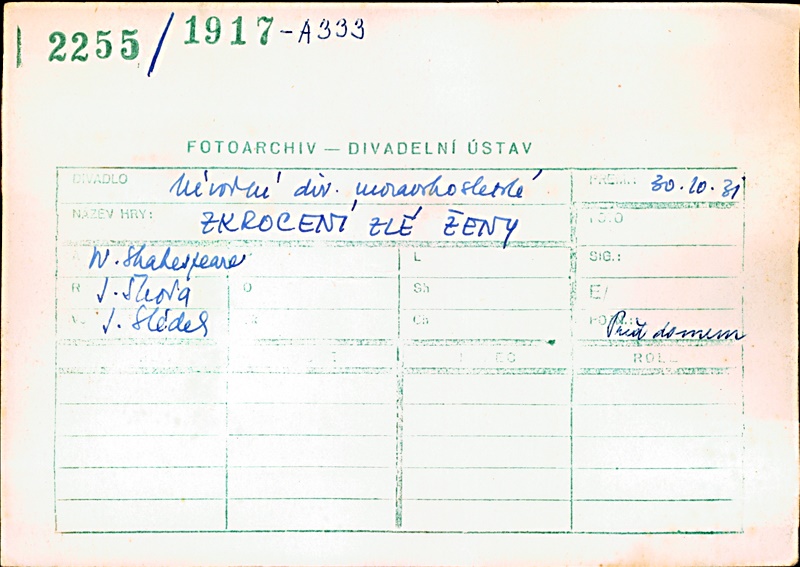 2255/1917-A333
FOTOARCHIV — DIVADELNÍ ÚSTAV
DIVADLO div. moravskoslezské PREM.: 30.10.31
NÁZEV HRY: ZKROCENÍ ZLÉ ŽENY
W. Shakespeare L SIG.:
R J. Škoda O Sh E/
J. Sládek Ch Před domem
ROLE